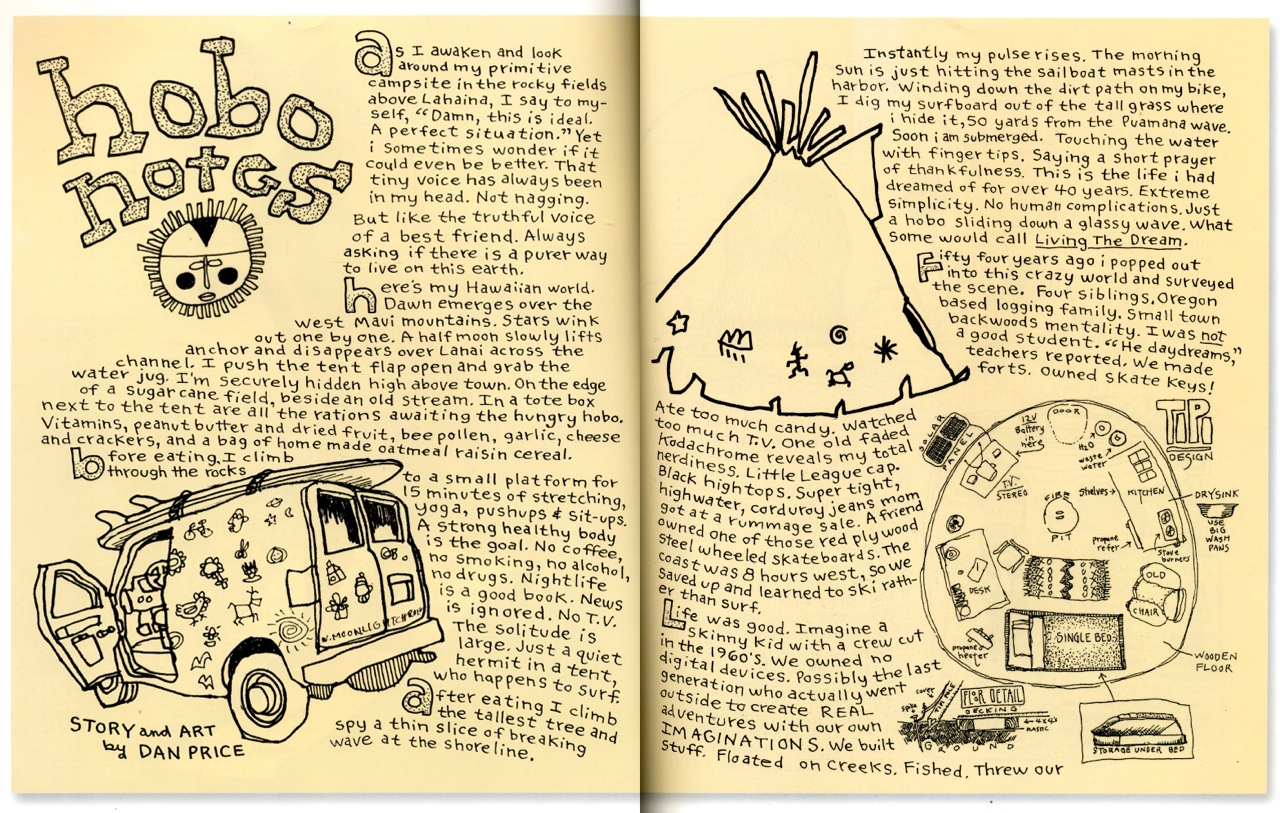 hobo
notes
As I awaken and look
around my primitive
campsite in the rocky fields
above Lahaina, I say to my-
self, "Damn, this is ideal.
A perfect situation." Yet
i sometimes wonder if it
could even be better. That
tiny voice has always been
in my head. Not nagging.
But like the truthful voice
of a best friend. Always
asking if there is a purer way
to live on this earth.
here's my Hawaiian world.
Dawn emerges over the
west Maui mountains. Stars wink
out one by one. A half moon slowly lifts
anchor and disappears over Lanai across the
channel. I push the tent flap open and grab the
water jug. I'm securely hidden high above town. On the edge
of a sugar cane field, beside an old stream. In a tote box
next to the tent are all the rations awaiting the hungry hobo.
Vitamins, peanut butter and dried fruit, bee pollen, garlic, cheese
and crackers, and a bag of home made oatmeal raisin cereal.
before eating, I climb
through the rocks
to a small platform for
15 minutes of stretching,
yoga, pushups & sit-ups.
A strong healthy body
is the goal. No coffee,
no smoking, no alcohol,
no drugs. Nightlife
is a good book. News
is ignored. No T.V.
The solitude is
large. Just a quiet
hermit in a tent,
who happens to surf.
after eating I climb
the tallest tree and
spy a thin slice of breaking
wave at the shoreline.
STORY and ART
by DAN PRICE
Instantly my pulse rises. The morning
Sun is just hitting the sailboat masts in the
harbor. Winding down the dirt path on my bike,
I dig my surfboard out of the tall grass where
i hide it, 50 yards from the Puamana wave.
Soon i am submerged. Touching the water
with finger tips. Saying a short prayer
of thankfulness. This is the life i had
dreamed of for over 40 years. Extreme
simplicity. No human complications. Just
a hobo sliding down a glassy wave. What
some would call Living The Dream.
Fifty four years ago i popped out
into this crazy world and surveyed
the scene. Four siblings, Oregon
based logging family. Small town
backwoods mentality. I was not
a good student. "He daydreams,"
teachers reported. We made
forts. Owned skate keys!
Ate too much candy. Watched
too much T.V. One old faded
Kodachrome reveals my total
nerdiness. Little League cap.
Black hightops. Super tight,
highwater, corduroy jeans mom
got at a rummage sale. A friend
owned one of those red plywood
Steel wheeled skateboards. The
coast was 8 hours west, so we
saved up and learned to ski rath-
er than surf.
Life was good. Imagine a
skinny kid with a crew cut
in the 1960's. We owned no
digital devices. Possibly the last
generation who actually went
outside to create REAL
adventures with our own
IMAGINATIONS. We built
stuff. Floated on creeks. Fished. Threw our
TiPi
DESIGN
SOLAR
PANEL
12V
Battery
in
here
DOOR
H2O
waste
water
T.V.
STEREO
FIRE
PIT
shelves
KITCHEN
DRYSINK
USE
BIG
WASH
PANS
propane
refer
stove
burners
DESK
OLD
CHAIR
SINGLE BED
propane
heater
WOODEN
FLOOR
cover
FLOR DETAIL
DECKING
4x4's
GROUND
STORAGE UNDER BED